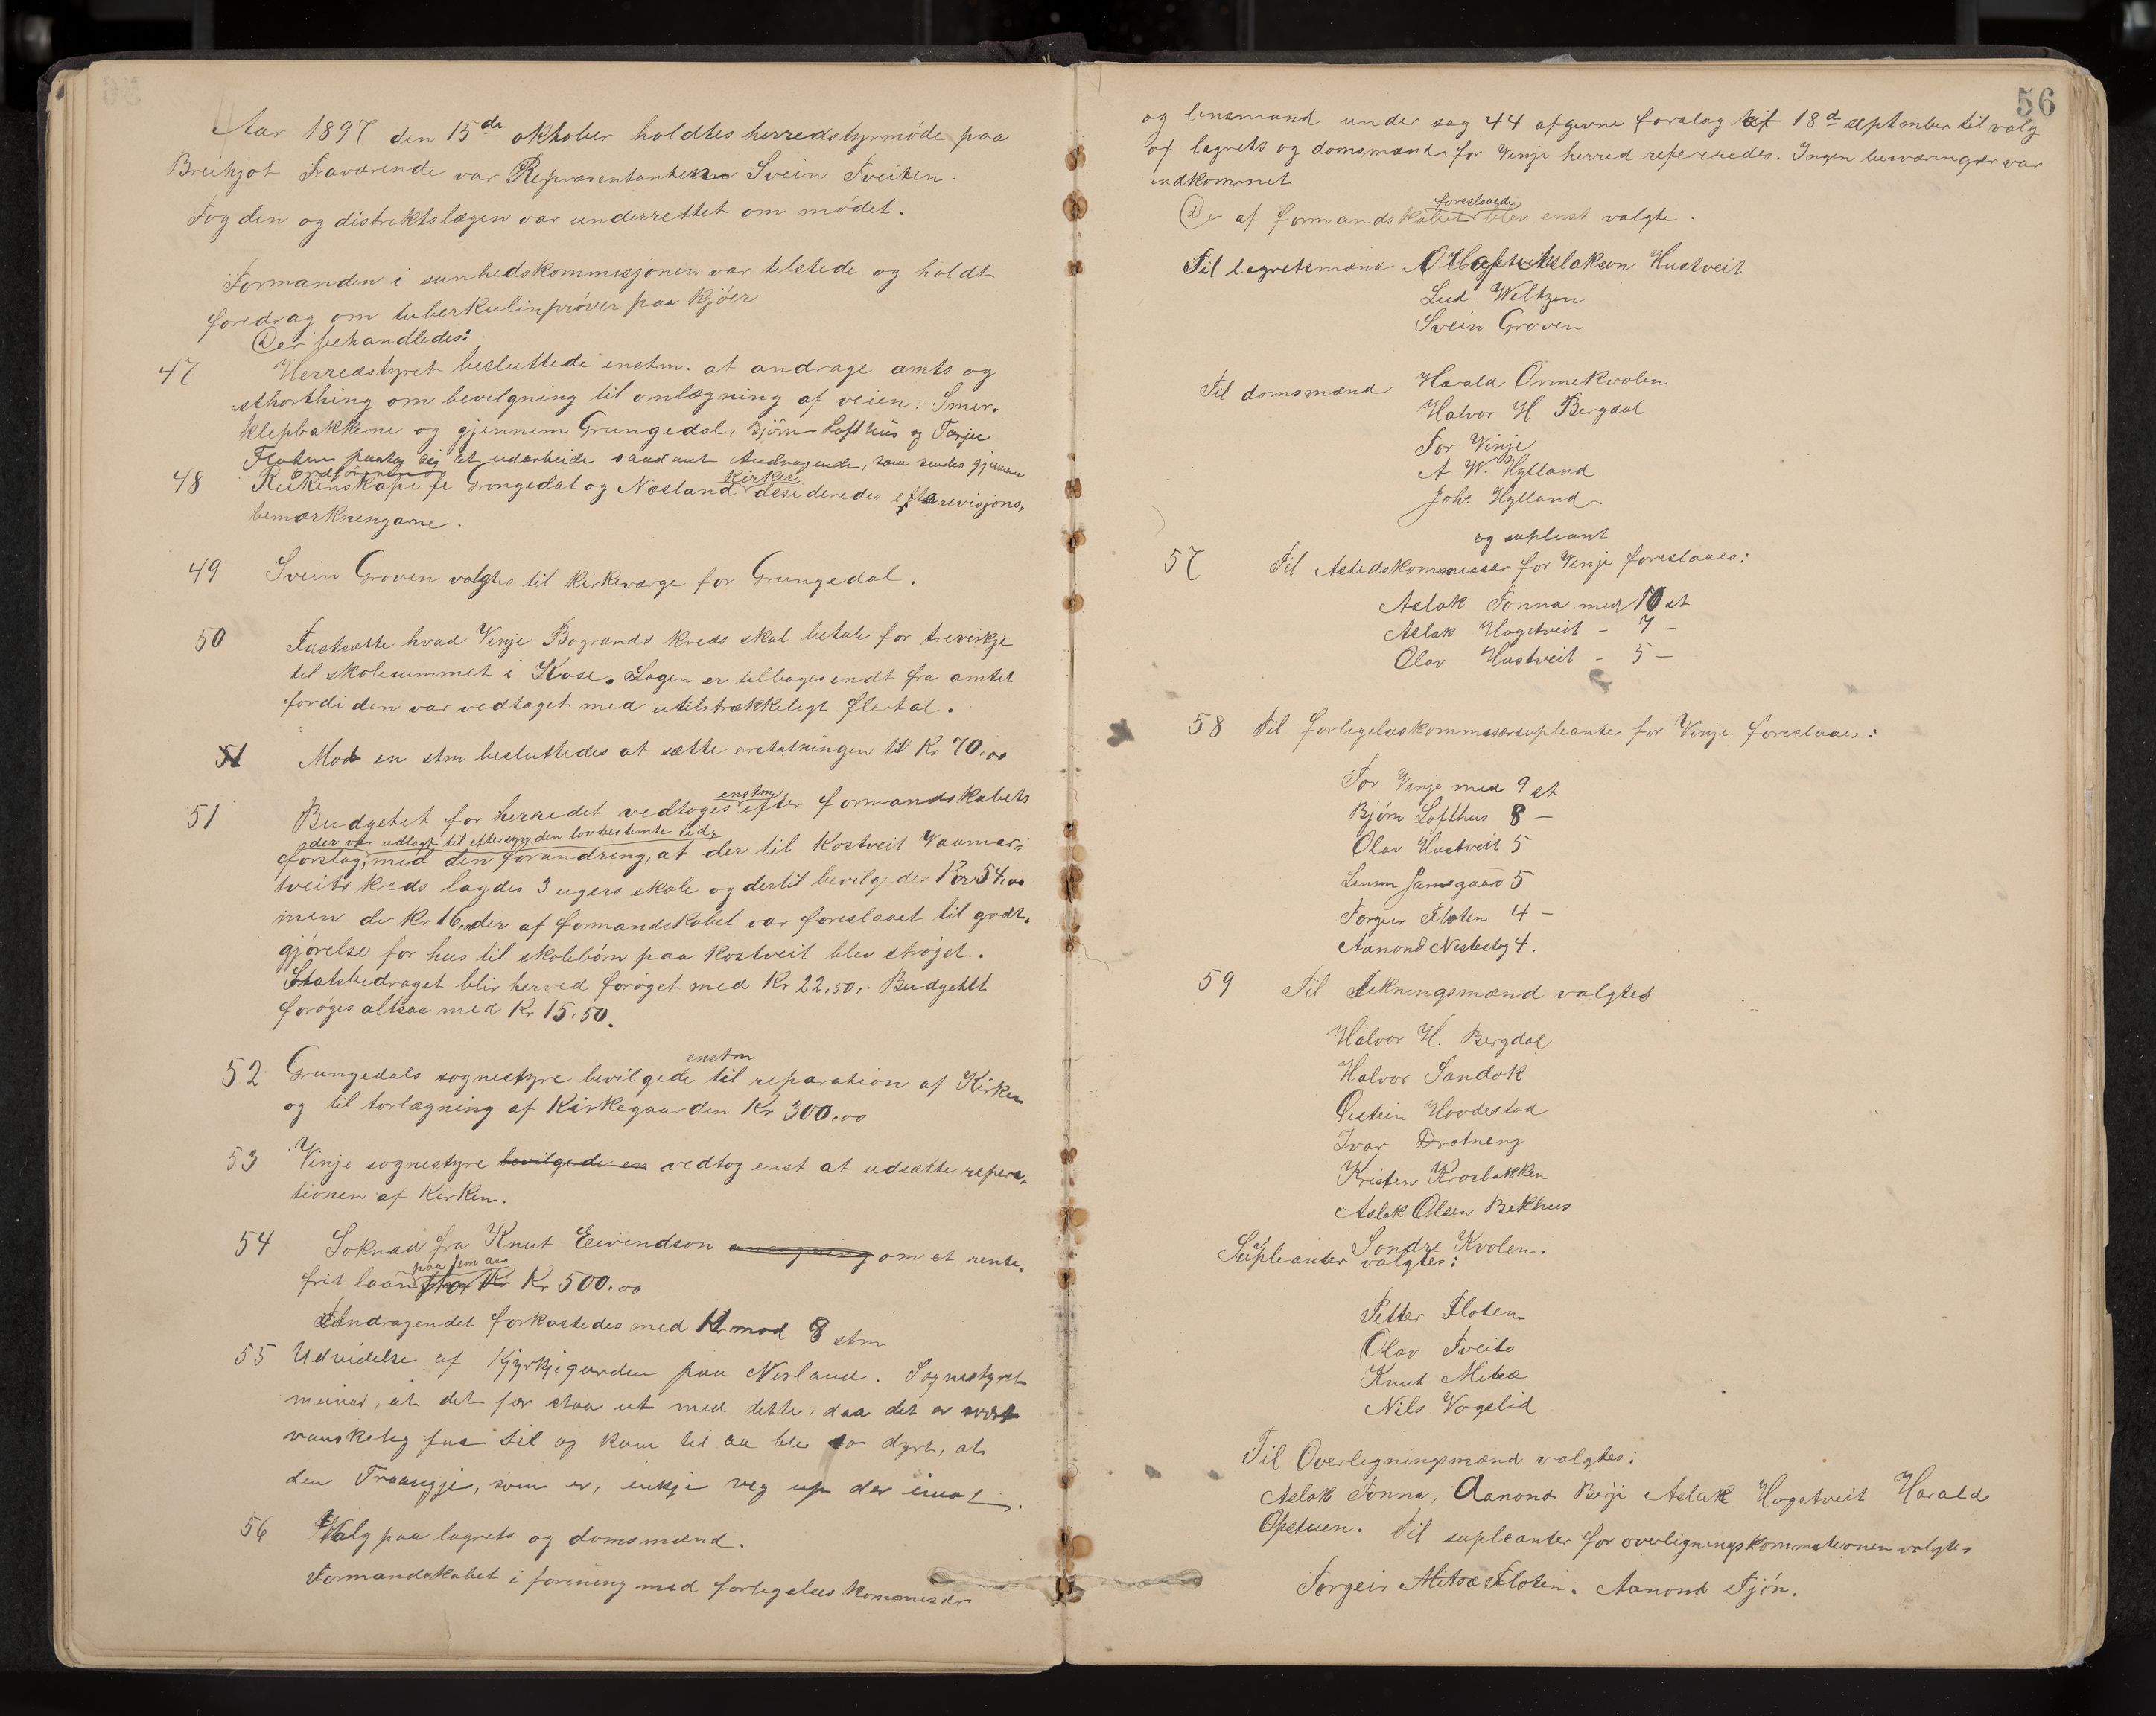 Aar 1897 den 15de oktober holdtes herredstyrmöde paa
Breihjot Fraværende var Repræsentanten Svein Tveiten.
Fogden og distriktslægen var underrettet om mödet.
Formanden i sunhedskommisjonen var tilstede og holdt
foredrag om tuberkulinpröver paa kjöer
Der behandledes:
47 Herredstyret besluttede enstm. at andrage amts og
sthorthing om bevilgning til omlægning af veien: Smør-
klepbakkerne og gjennem Grungedal, Björn Lofthus og Tarjei
Flaten paatog sig at udarbeide saadant Andragende, som sendes gjennem
ordföreren
48 Rekinskapi fr Grungedal og Næsland kirker desideredes efter revisjons-
bemærkningarne.
49 Svein Groven valgtes til kirkeværge for Grungedal.
50 Fastsætte hvad Vinje Bøgrænds kreds skal betale for trevirkje
til skolerummet i Kose. Sagen er tilbagesendt fra amtet
fordi den var vedtaget med utilstrækkeligt flertal.
Mod en stm besluttedes at sætte erstatningen til Kr 70.00
51 Budgetet for herredet vedtoges enstm efter formandskabets
der var udlagt til eftersyn den lovbestemte tid,
forslag, med den forandring, at der til Kostveit Vaamar-
tveits kreds lagdes 3 ugers skole og dertil bevilgedes Kr 54.00
men de Kr 16.00 der af formandskabet var foreslaaet til godt-
gjörelse for hus til skolebörn paa Kostveit blev ströget.
Statsbidraget blir herved foröget med Kr 22,50,. Budgettet
foröges altsaa med Kr 15.50.
52 Grungedals sognestyre bevilgede enstm til reparation af Kirken
og til torlægning af Kirkegaarden Kr 300.00
53 Vinje sognestyre bevilgede en vedtog enst at udsætte repera-
tionen af Kirken.
54 Soknad fra Knut Eivindson om et rente-
frit laan paa fem aar Kr 500.00
Andragendet forkastedes med 11 mod 8 stm
55 Udvidelse af Kjyrkjegarden paa Nesland. Sognestyret
meinar, at det fær staa ut med dette, daa det er svært
vanskeleg faa til og kom til aa ble so dyrt, at
den Traangje, som er, inkje veg up der imot.
56 Valg paa lagrets og domsmænd.
Formandskabet i forening med forligelseskommisær
56
og lensmand under sag 44 afgivne forslag af 18de september til valg
af lagrets og domsmænd for Vinje herred refereredes. Ingen besværinger var
indkommet
De af formandskabet foreslaaede blev enst valgte.
Til lagretsmænd Olaf Aslakson Hustveit
Lud. Weltzin
Svein Groven
Til domsmænd Harald Ormekvolen
Halvor H Bergdal
Tor Vinje
A W. Hylland
Joh. Hylland.
og supleant
57 Til Astedskommissær for Vinje foreslaaes:
Aslak Tonna med 10 st
Aslak Hogetveit - 7 -
Olav Hustveit - 5 -
58 Til forligelseskommisærsupleanter for Vinje foreslaaes:
Tor Vinje med 9 st
Björn Lofthus 8 -
Olav Hustveit 5
Lensm Jamsgaard 5
Torgeir Floten 4 -
Aanond Nestestog 4.
59 Til Likningsmænd valgtes
Halvor H. Bergdal
Halvor Sandok
Østein Hovdestad
Ivar Drotning
Kristen Krosbakken
Aslak Olsen Bekhus
Sondre Kvolen.
Supleanter valgtes:
Petter Floten
Olav Tveito
Knut Mitbø
Nils Vogslid
Til Overlegningsmænd valgtes:
Aslak Tonna, Aanond Berge Aslak Hogetveit Harald
Opstuen. Til supleanter for overligningskommisionen valgtes
Torgeir Floten. Aanond Tjön.